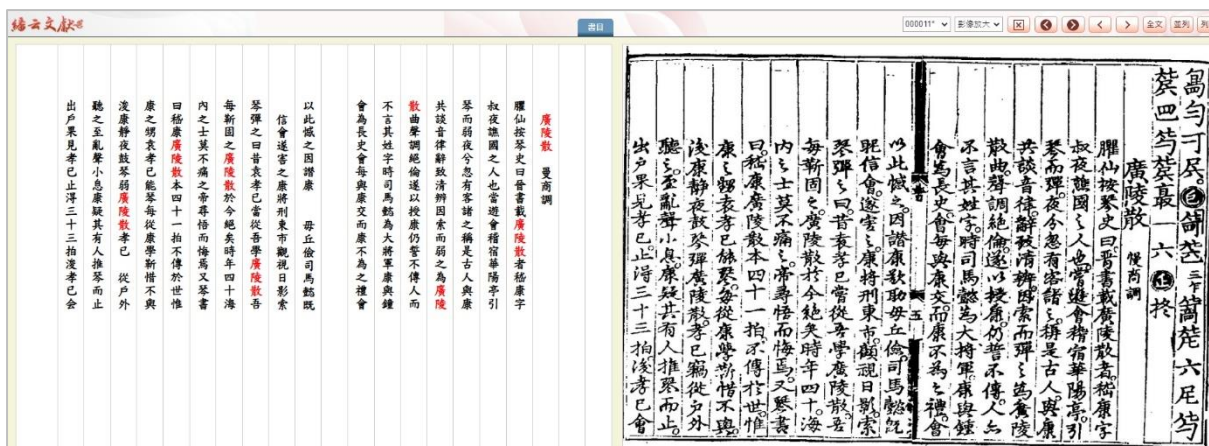 書目
000011*
影像放大
全文
並列
列
廣陵散 曼商調
臞仙按琴史曰晉書載廣陵散者嵇康字
叔夜譙國之人也當遊會稽宿華陽亭引
琴而弱夜兮忽有客諸之稱是古人與康
共談音律辭致清辨因索而弱之為廣陵
散曲聲調絕倫遂以授康仍誓不傳人而
不言其姓字時司馬懿為大將軍康與鐘
會為長史會每與康交而康不為之禮會
以此憾之因譖康 毋丘儉司馬懿既
信會遂害之康將刑東市觀視日影索
琴彈之曰昔袁孝已當從吾學廣陵散吾
每靳固之廣陵散於今絕矣時年四十海
內之士莫不痛之帝尋悟而悔焉又琴書
曰嵇康廣陵散本四十一拍不傳於世惟
康之甥袁孝已能琴每從康學靳惜不與
後康靜夜鼓琴弱廣陵散孝己 從戶外
聽之至亂聲小息康疑其有人推琴而止
出戶果見孝已止得三十三拍後孝已會
廣陵散 慢商調
臞仙按琴史曰晉書載廣陵散者嵇康字
叔夜譙國之人也嘗遊會稽宿華陽亭引
琴而彈夜今忽有客諸之稱是古人與康
共談音律辭致清辨因索而彈之為廣陵
散曲聲調絕倫遂以授康仍誓不傳人亦
不言其姓字時司馬懿為大將軍康與鍾
會為長史會每與康交而康不為之禮會
以此憾之因譖康欲助毋丘儉司馬懿既
昵信會遂害之康將刑東市顧視日影索
琴彈之曰昔袁孝已嘗從吾學廣陵散吾
每靳固之廣陵散於今絕矣時年四十海
內之士莫不痛之帝尋悟而悔焉又琴書
曰嵇康廣陵散本四十一拍不傳於世惟
康之甥袁孝已能琴每從康學靳惜不與
後康靜夜鼓琴彈廣陵散孝已竊從戶外
聽之至亂聲小息康疑其有人推琴而止
出戶果見孝已止得三十三拍後孝已會